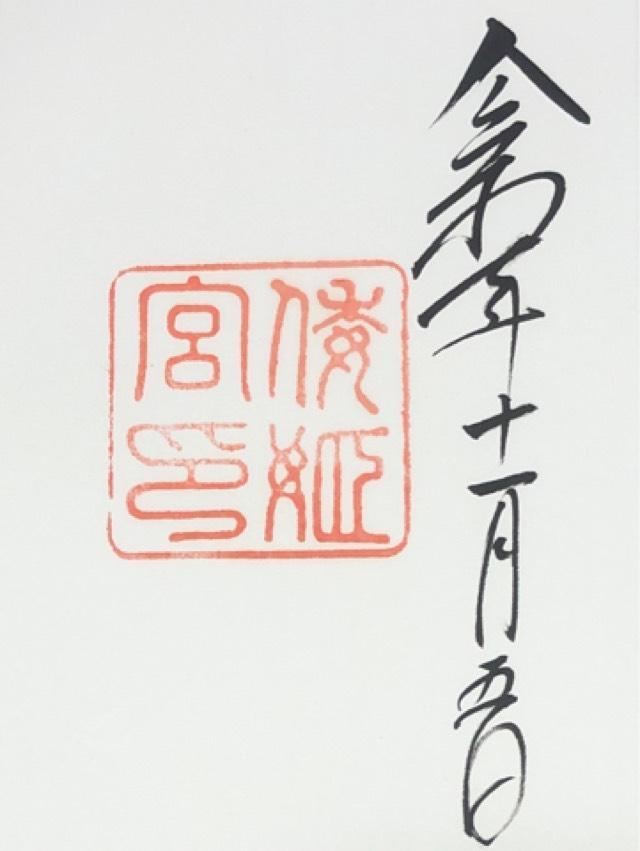 令和年十一月五日
倭姫
宮印